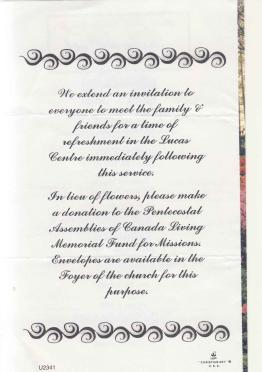 We extend an invitation to
everyone to meet the family &
friends for a time of
refreshment in the Lucas
Centre immediately following
this service.
In lieu of flowers, please make
a donation to the Pentecostal
Assemblies of Canada Living
Memorial Fund for Missions.
Envelopes are available in the
Foyer of the church for this
purpose.
U2341
U.S.A.